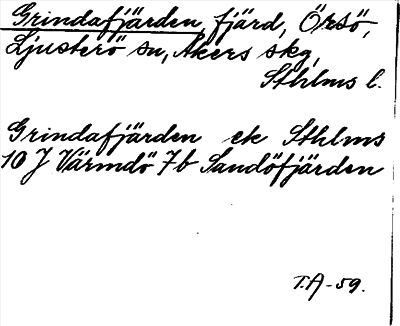 Grindafjärden, fjärd, Örsö,
Ljusterö sn, Åkers skg,
Sthlms l.
Grindafjärden ek Sthlms
10 J Värmdö 7b Sandöfjärden
T.A-59.